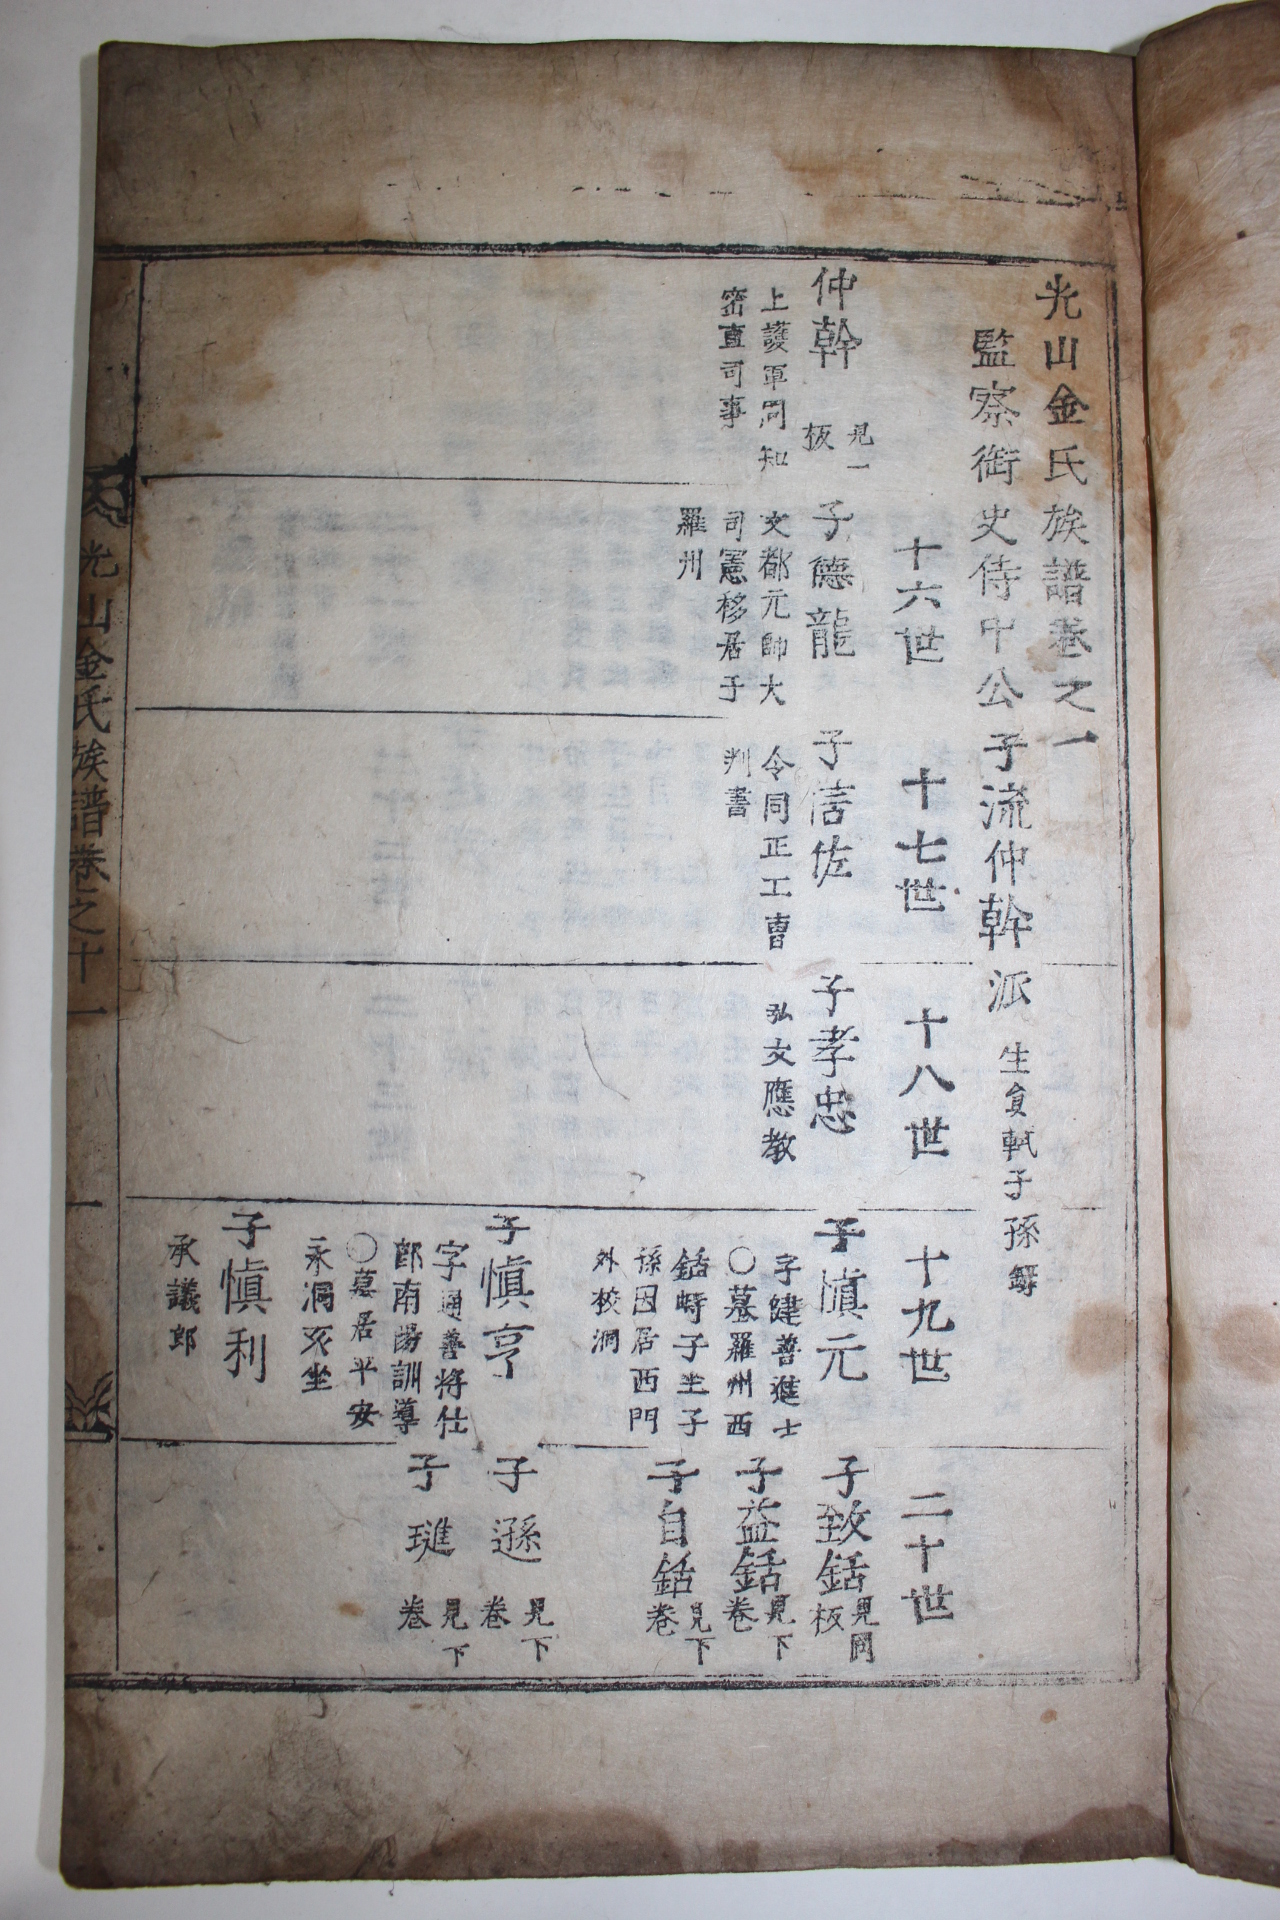 光山金氏族譜卷之一
監察御史侍中公子流仲幹派 生負軾子孫錫
十六世
十七世
十八世
十九世
二十世
仲幹 見一
板
上護軍同知
密直司事
子德龍
文都元帥大
司憲移居于
羅州
子信佐
令同正工曺
判書
子孝忠
弘文應教
子愼元
字健善進士
○墓羅州西
銛時子生子
孫因居西門
外校洞
子愼亨
字通善將仕
郎南陽訓導
○墓居平安
永洞亥坐
子愼利
承議郎
子致銛 見同
板
子益銛 見下
卷
子自銛 見下
卷
子遜 見下
卷
子璡 見下
卷
光山金氏族譜卷之十一
一